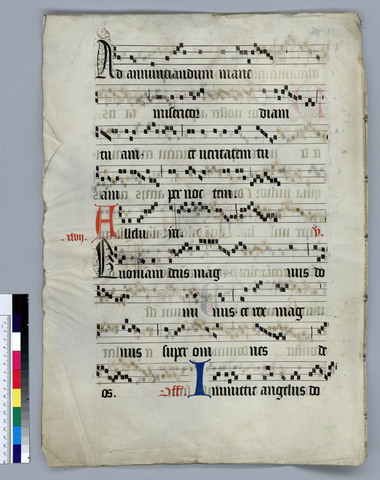 Ad annunciandum mane
misericor diam
tu am. et veritatem tu
am per noc tem.
Alleluia. V.
xlvij.
Quoniam deus mag nus do
mi nus et rex mag
nus super om nes de
os. Offm Inmittit angelus do